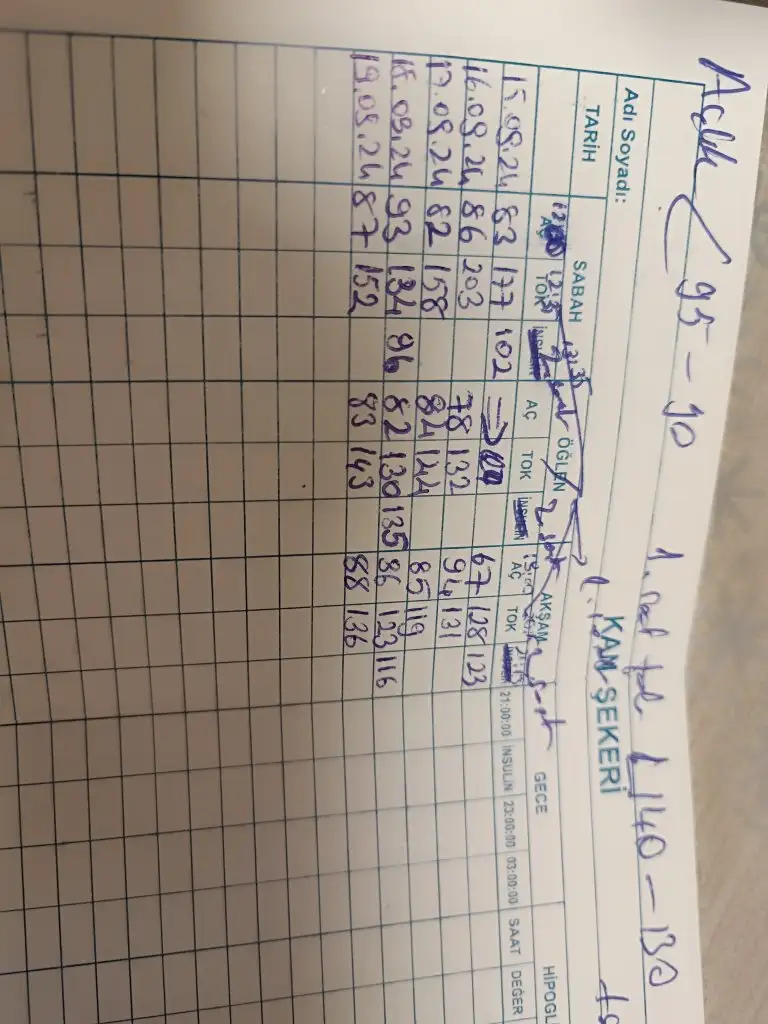 Açlık < 95 - 90
1. saat tok < 140 - 130
Adı Soyadı:
KAN ŞEKERİ
TARİH SABAH ÖĞLEN AKŞAM GECE HİPOGL
AÇ TOK İNSULİN AÇ TOK İNSULİN AÇ TOK İNSULİN 21:00:00 İNSULİN 23:00:00 03:00:00 SAAT DEĞER
2. saat
15.09.24 83 177 102 → 67 128 123
16.09.24 86 203 78 132 94 131
17.09.24 82 158 84 144 85 119
18.09.24 93 134 96 82 130 135 86 123 116
19.09.24 87 152 83 143 88 136